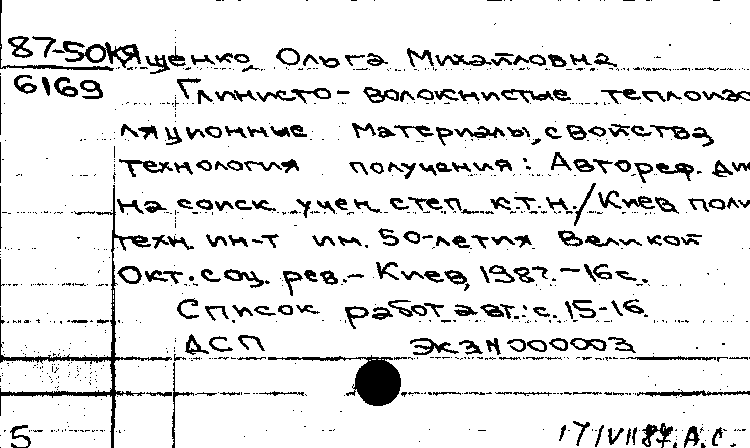 87-50К Ященко, Ольга Михайловна
6169 Глинисто-волокнистые теплоизо
ляционные материалы, свойства,
технология получения: Автореф. дис
на соиск. учен. степ. к.т.н./Киев. поли
техн. ин-т им. 50-летия Великой
Окт. соц. рев.- Киев, 1987.-16с.
Список работ авт.: с. 15-16.
ДСП Экз N 000003
5 17/VII 87. А.С.